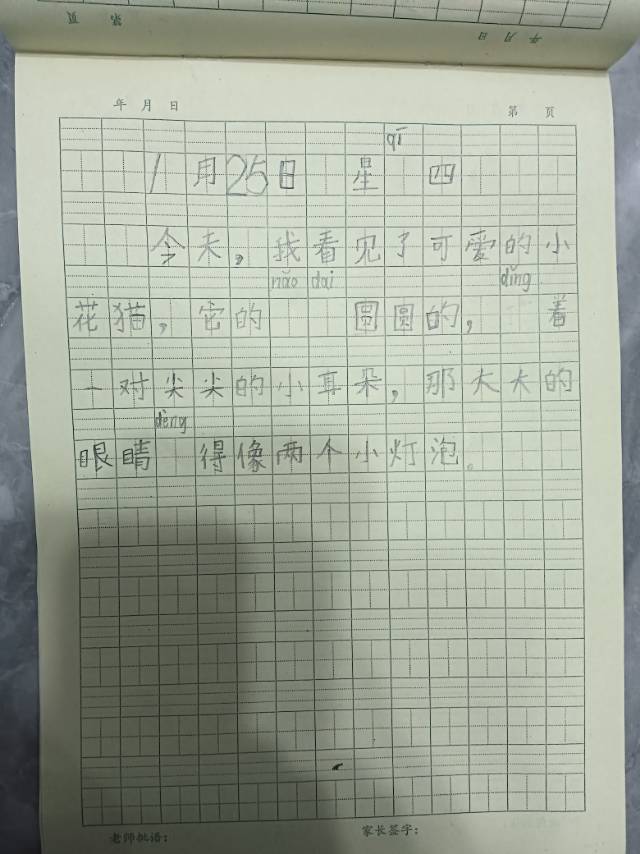 第 页
年 月 日
年 月 日 第 页
qī
1月25日 星 四
今天,我看见了可爱的小
nǎo dai dǐng
花猫,它的 圆圆的, 着
一对尖尖的小耳朵,那大大的
dèng
眼睛 得像两个小灯泡。
老师批语: 家长签字: